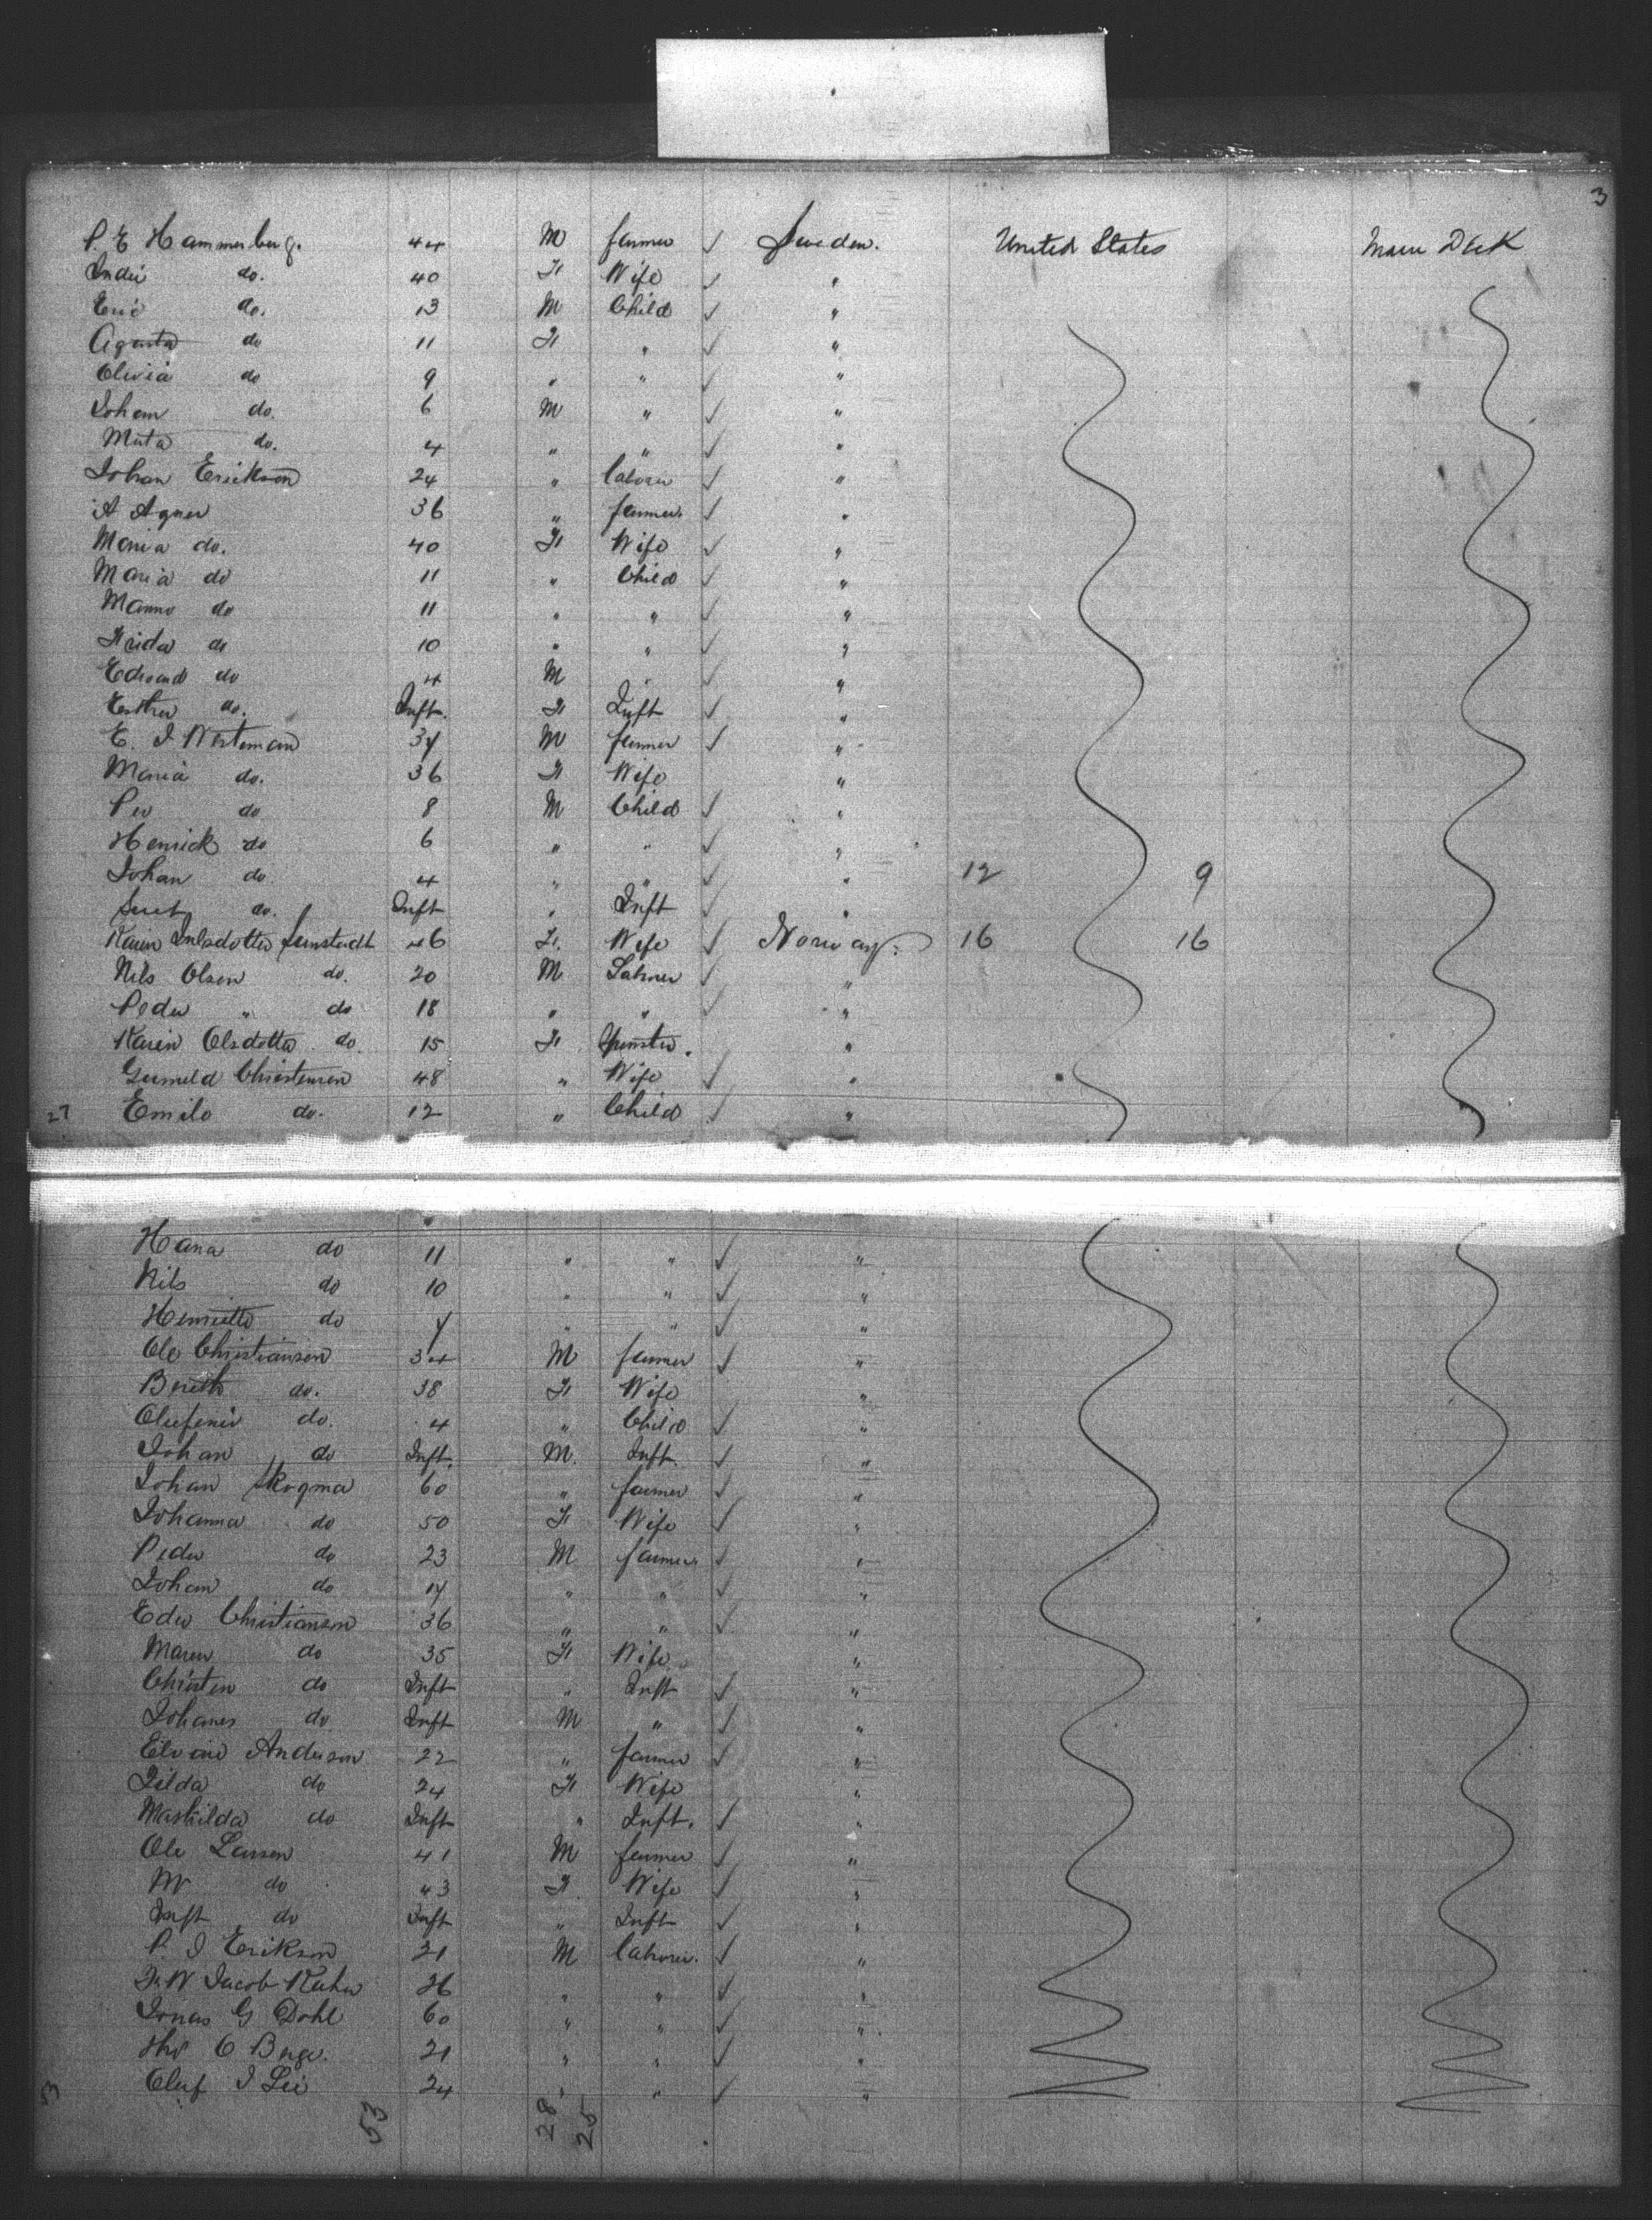 3
P. E Hammerberg. 44 M farmer ✓ Sweden. United States Main Deck
do. 40 F Wife ✓ "
Eric do. 13 M Child ✓ "
Agusta do 11 F " ✓ "
Olivia do 9 " " ✓ "
Johan do. 6 M " ✓ "
do. 4 " " ✓ "
Johan Erickson 24 " labour ✓ "
A Agner 36 " farmer. ✓ "
Maria do. 40 F Wife ✓ "
Maria do 11 " Child ✓ "
Manno do 11 " " ✓ "
Frida do 10 " " ✓ "
Edward do 4 M " ✓ "
Esther do. Inft. F Inft ✓ "
E. J Westeman 37 M farmer ✓ "
Maria do. 36 F Wife "
Per do 8 M Child ✓ "
Henrick do 6 " " ✓ "
Johan do 4 " " ✓ " 12 9
do. Inft " Inft ✓ "
Karin 46 F. Wife ✓ Norway. 16 16
Nils Olsen do. 20 M Labourer ✓ "
Peder " do 18 " " ✓ "
Karin Olsdotter do. 15 F Spinster. "
Christensen 48 " Wife ✓ "
27 Emile do. 12 " Child ✓ "
Hana do 11 " " ✓ "
Nils do 10 " " ✓ "
Henrietta do 7 " " ✓ "
Ole Christiansen 34 M farmer ✓ "
Bereth do. 38 F Wife "
do. 4 " Child ✓ "
Johan do Inft. M. Inft. ✓ "
Johan Skogma 60 " farmer ✓ "
Johanna do 50 F Wife ✓ "
Peder do 23 M farmer ✓ "
Johan do 17 " " ✓ "
Eder Christianson 36 " " ✓ "
Maren do 35 F Wife "
Christen do Inft " Inft ✓ "
Johanes do Inft M " ✓ "
Anderson 22 " farmer ✓ "
do 24 F Wife "
Mashilda do Inft " Inft. ✓ "
Ole Larsen 41 M farmer ✓ "
M do 43 F Wife ✓ "
Inft do Inft " Inft ✓ "
P. J Erikson 21 M labourer. ✓ "
Jacob 26 " " ✓ "
Jonas G Dohl 60 " " ✓ "
O Berge. 21 " " ✓ "
53 Oluf J Lie 24 " " ✓ "
53 28 25